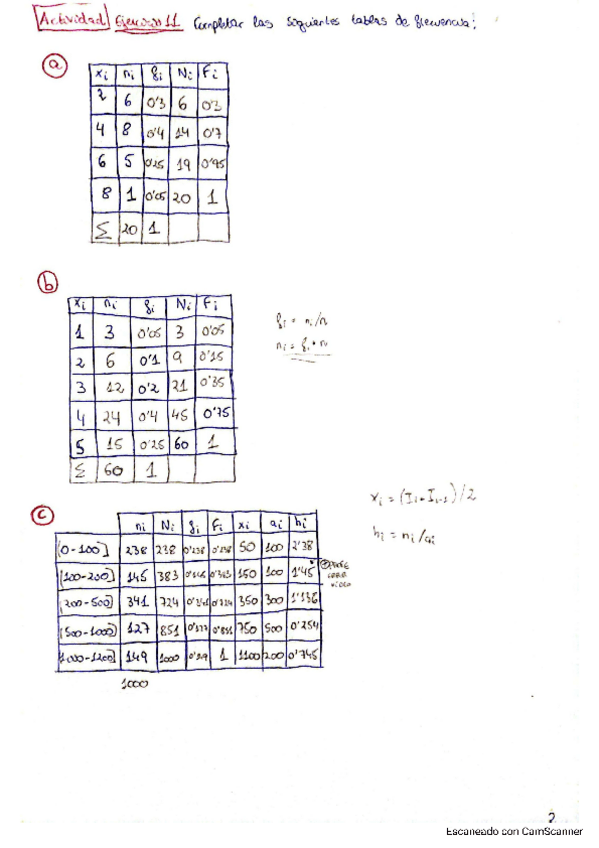 Actividad Ejercicio 11 Completar las siguientes tablas de frecuencia:
a
xi ni fi Ni Fi
2 6 0'3 6 0'3
4 8 0'4 14 0'7
6 5 0'25 19 0'95
8 1 0'05 20 1
Σ 20 1
b
xi ni fi Ni Fi
1 3 0'05 3 0'05
2 6 0'1 9 0'15
3 12 0'2 21 0'35
4 24 0'4 45 0'75
5 15 0'25 60 1
Σ 60 1
fi = ni/n
ni = fi · n
c
ni Ni fi Fi xi ai hi
[0-100] 238 238 0'238 0'238 50 100 2'38
(100-200] 145 383 0'145 0'383 150 100 1'45
(200-500] 341 724 0'341 0'724 350 300 1'136
(500-1000] 127 851 0'127 0'851 750 500 0'254
(1000-1200] 149 1000 0'149 1 1100 200 0'745
1000
xi = (Ii + Ii-1)/2
hi = ni/ai
2
Escaneado con CamScanner